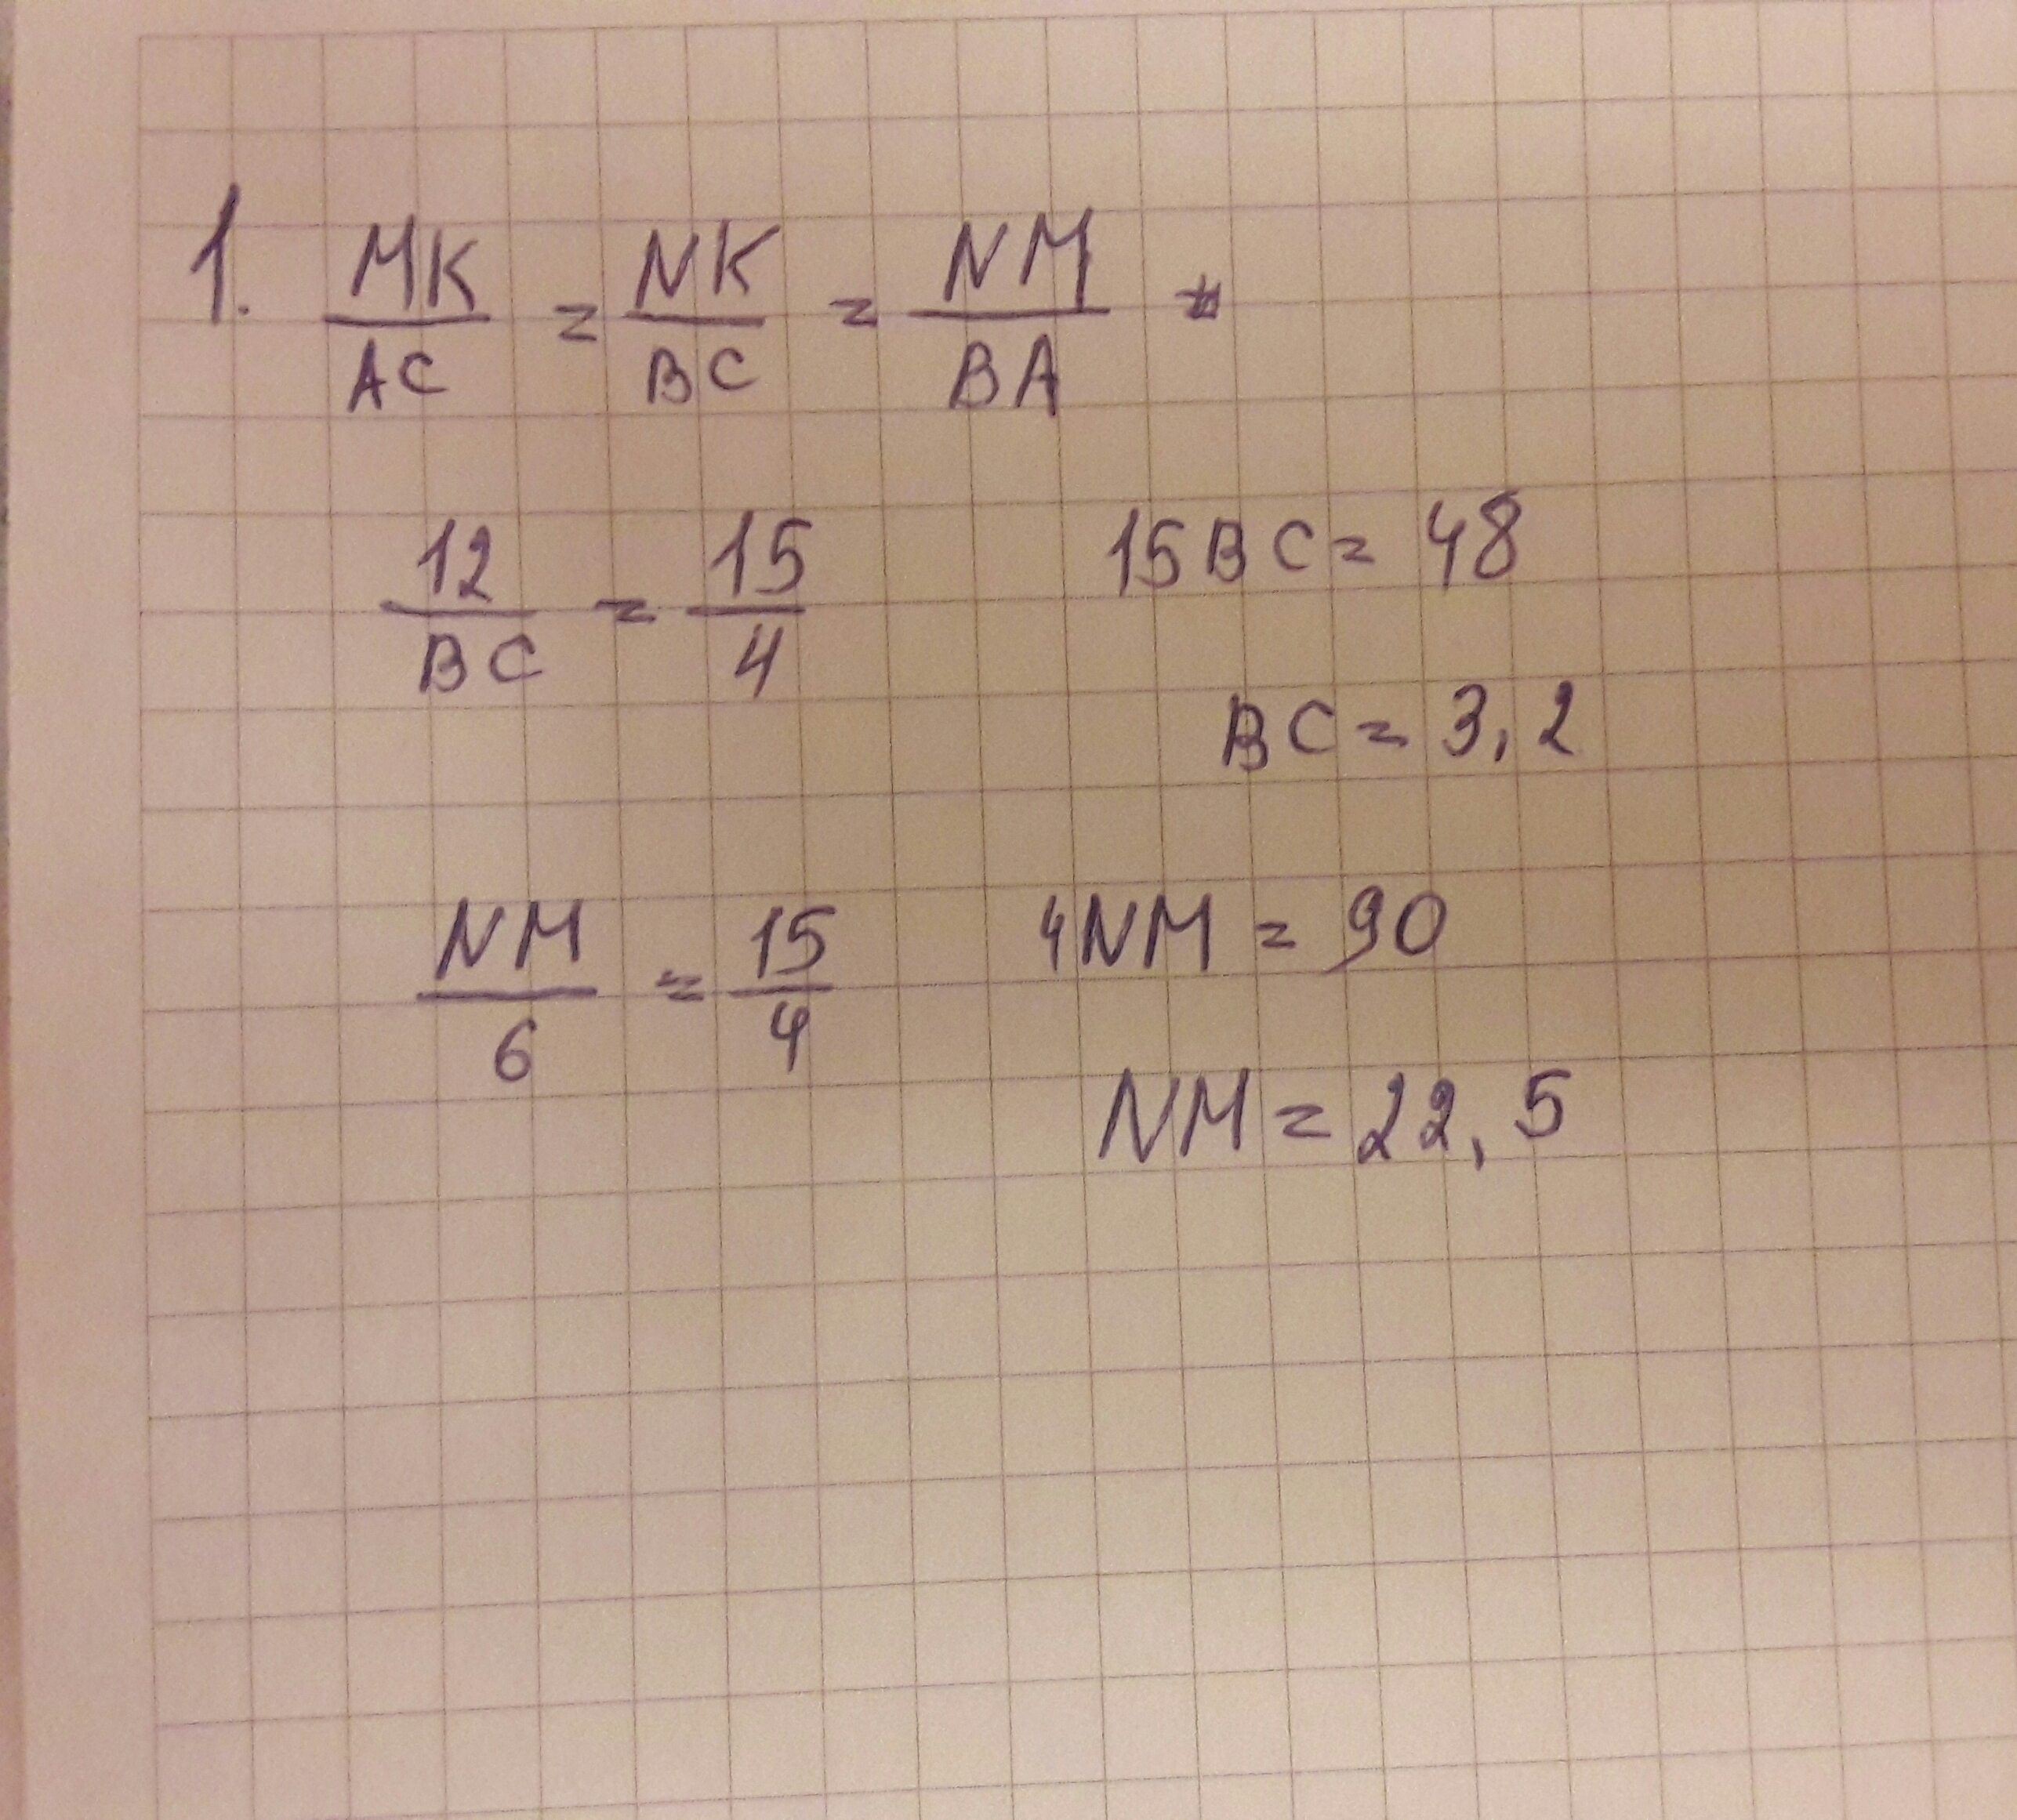 1. MK/AC = NK/BC = NM/BA
12/BC = 15/4 15BC = 48
BC = 3,2
NM/6 = 15/4 4NM = 90
NM = 22,5